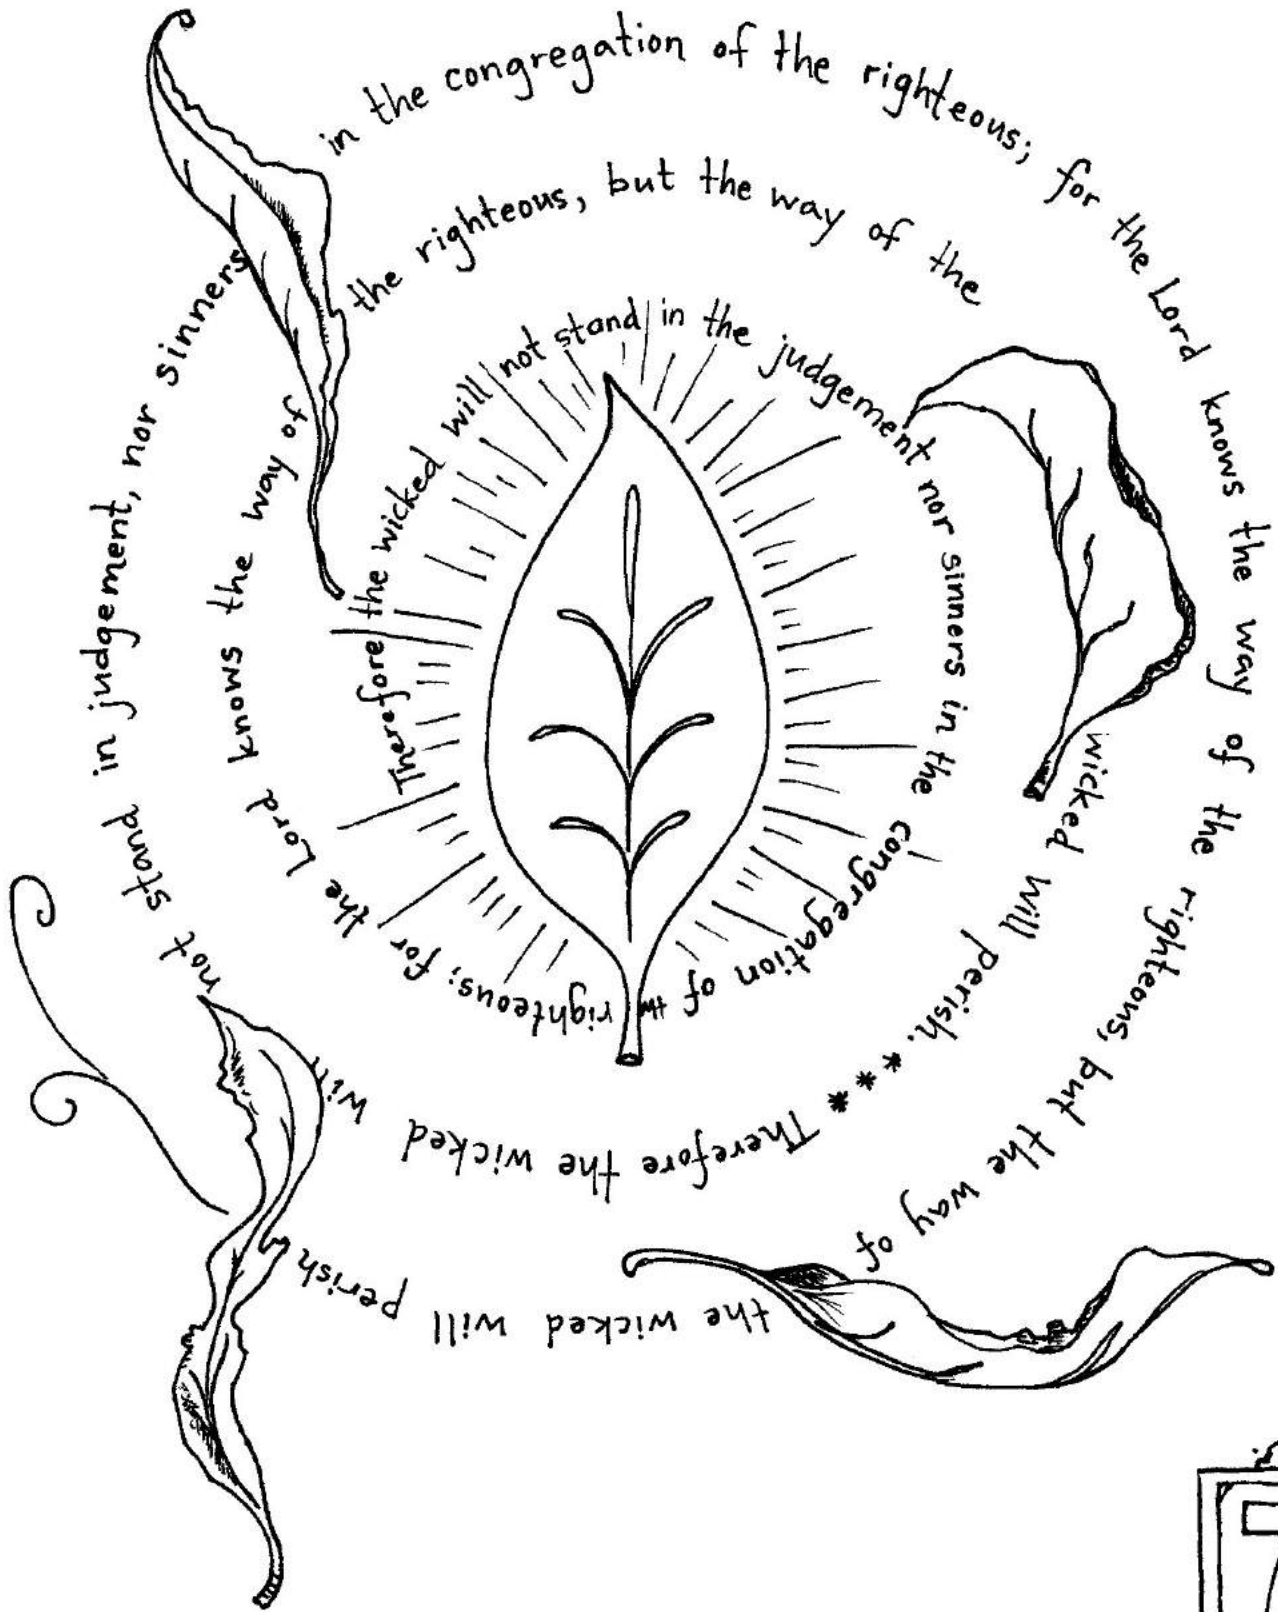 Therefore the wicked will not stand in the judgement nor sinners in the congregation of the righteous; for the Lord knows the way of the righteous, but the way of the wicked will perish. ***
Therefore the wicked will not stand in judgement, nor sinners in the congregation of the righteous; for the Lord knows the way of the righteous, but the way of the wicked will perish